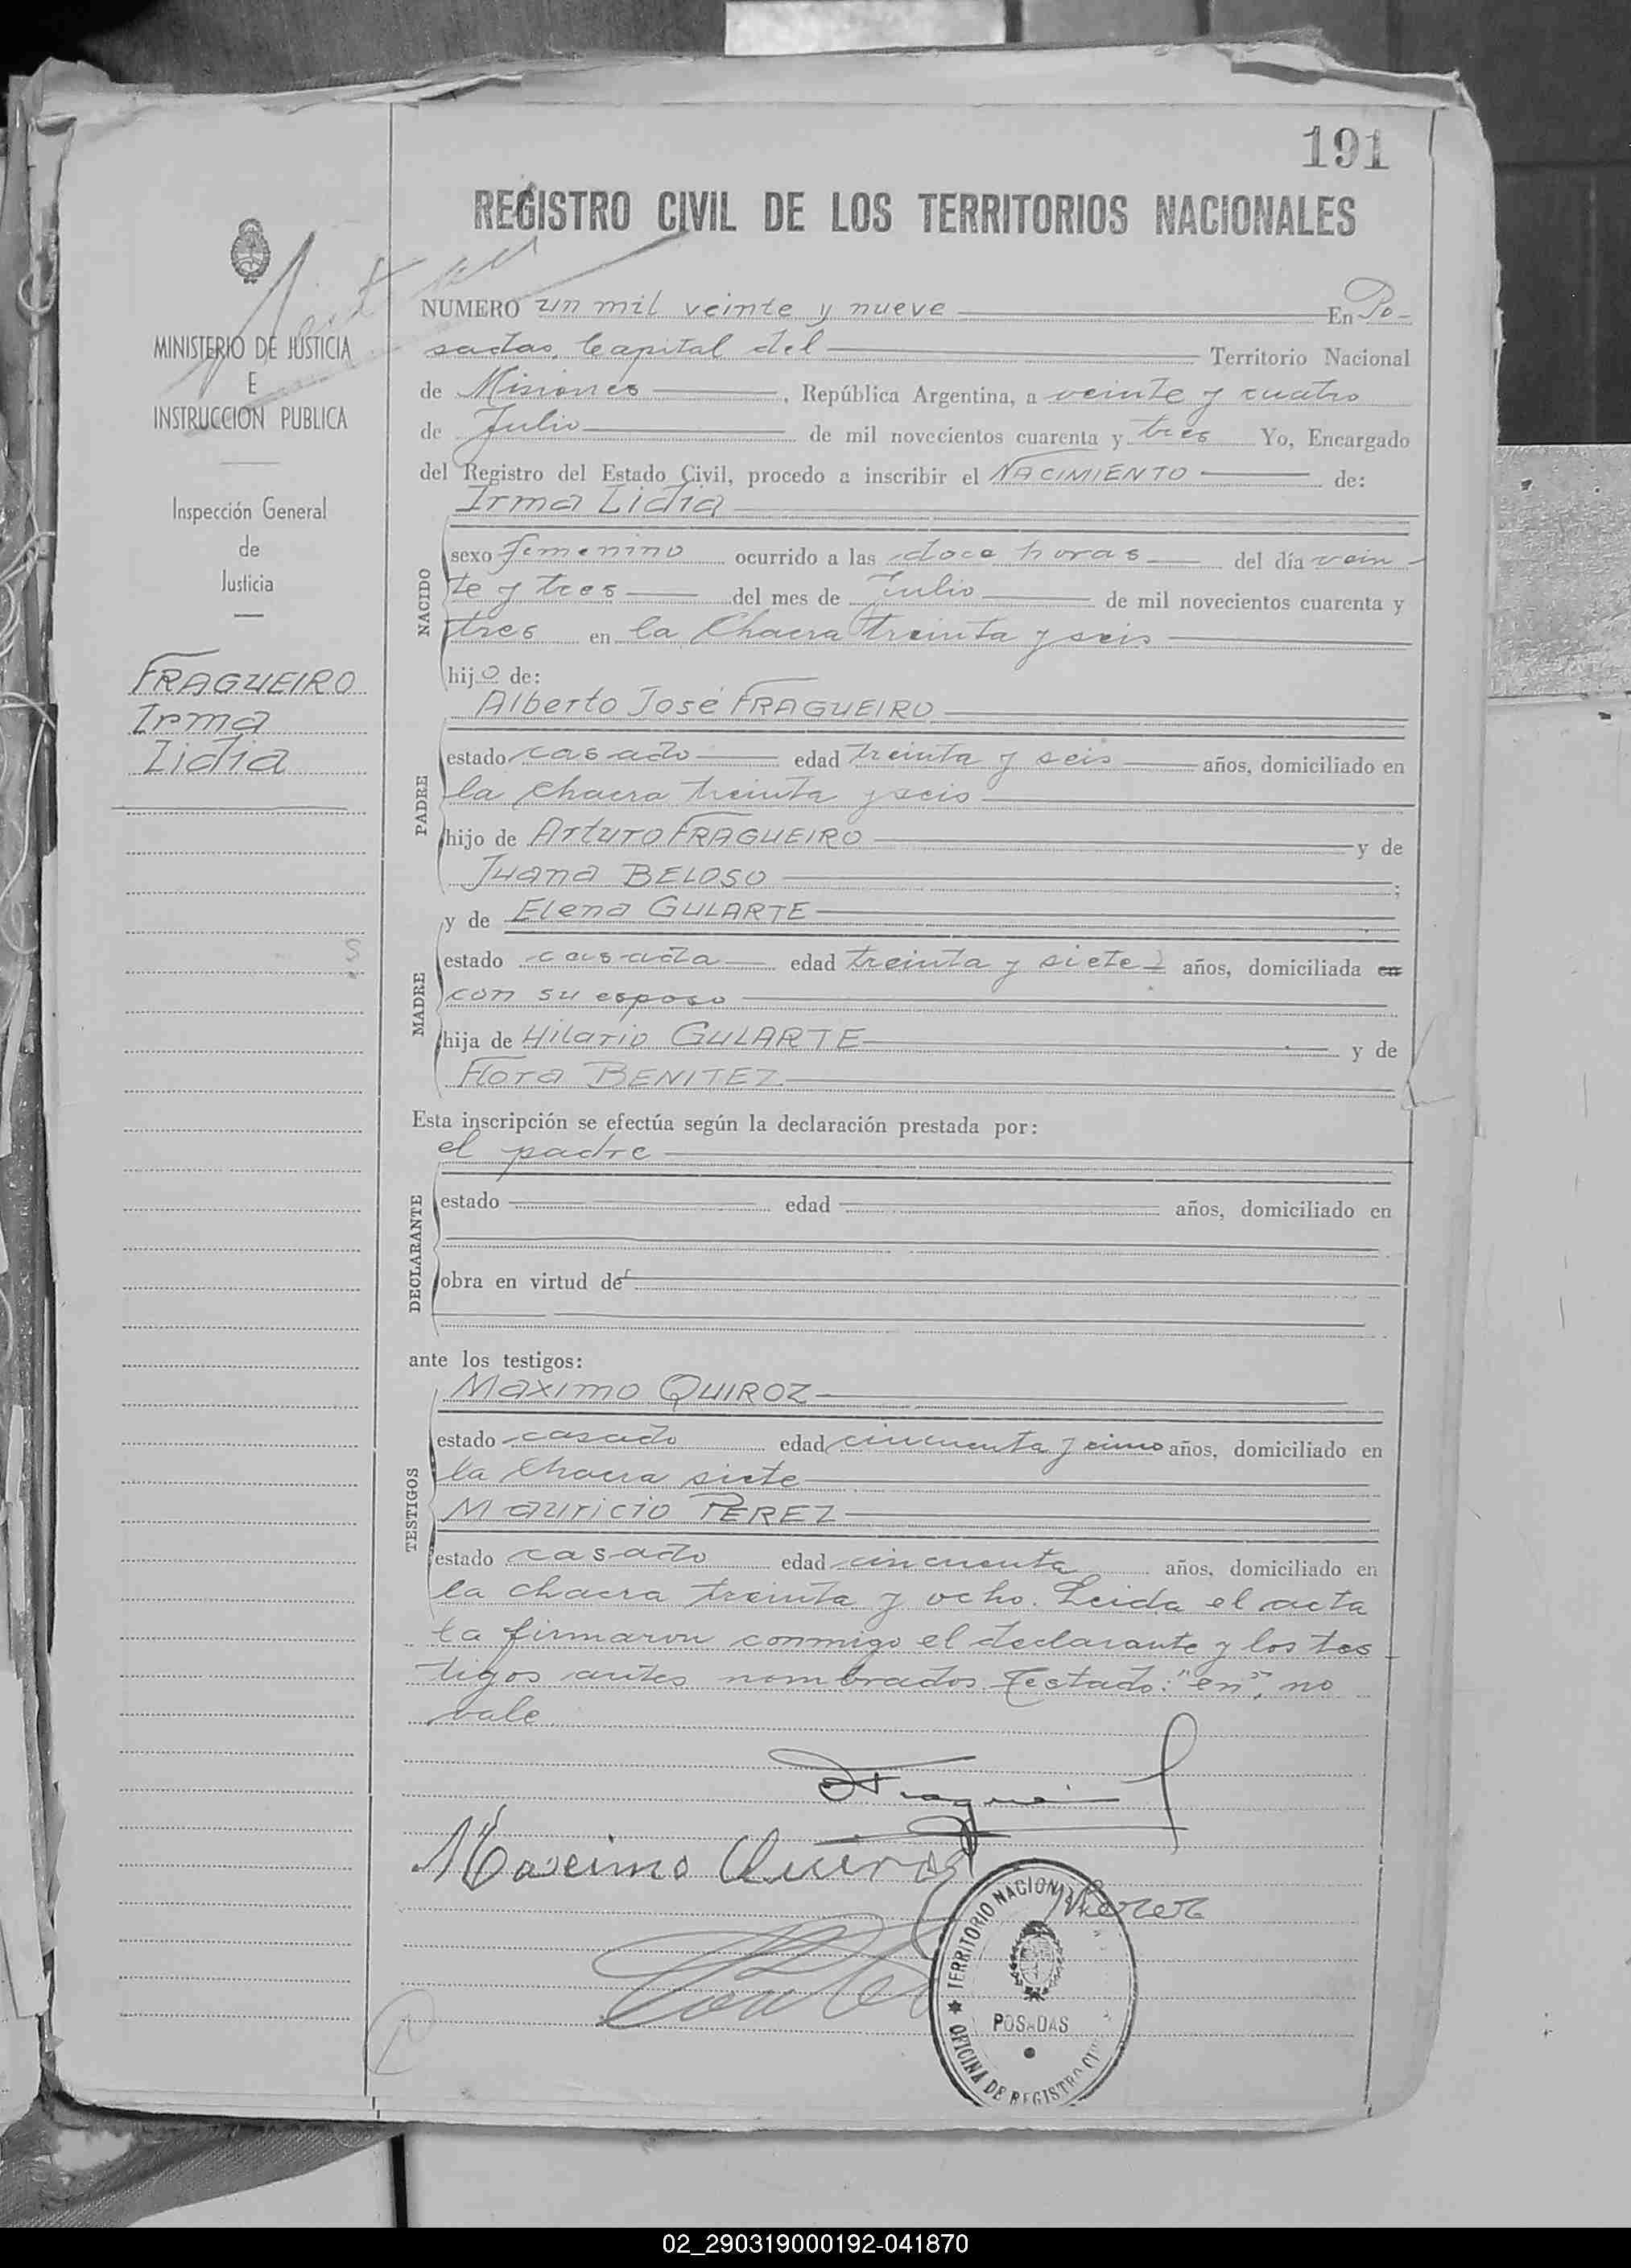 191
REGISTRO CIVIL DE LOS TERRITORIOS NACIONALES
MINISTERIO DE JUSTICIA
E
INSTRUCCION PUBLICA
Inspección General
de
Justicia
FRAGUEIRO
Irma
Lidia
NUMERO un mil veinte y nueve En Po-
sadas, Capital del Territorio Nacional
de Misiones, República Argentina, a veinte y cuatro
de Julio de mil novecientos cuarenta y tres Yo, Encargado
del Registro del Estado Civil, procedo a inscribir el NACIMIENTO de:
Irma Lidia
NACIDO
sexo femenino ocurrido a las doce horas del día vein-
te y tres del mes de Julio de mil novecientos cuarenta y
tres en la Chacra treinta y seis
hijo de:
Alberto José FRAGUEIRO
PADRE
estado casado edad treinta y seis años, domiciliado en
la chacra treinta y seis
hijo de Arturo FRAGUEIRO y de
Juana BELOSO ;
MADRE
y de Elena GULARTE
estado casada edad treinta y siete años, domiciliada en
con su esposo
hija de Hilario GULARTE y de
Flora BENITEZ
Esta inscripción se efectúa según la declaración prestada por:
el padre
DECLARANTE
estado edad años, domiciliado en
obra en virtud de
ante los testigos:
Maximo QUIROZ
TESTIGOS
estado casado edad cincuenta y cinco años, domiciliado en
la Chacra siete
Mauricio PEREZ
estado casado edad cincuenta años, domiciliado en
la chacra treinta y ocho. Leida el acta
la firmaron conmigo el declarante y los tes-
tigos antes nombrados. Testado: "en", no
vale
Maximo Quiroz
TERRITORIO NACIONAL
POSADAS
OFICINA DE REGISTRO CIVIL
02_290319000192-041870